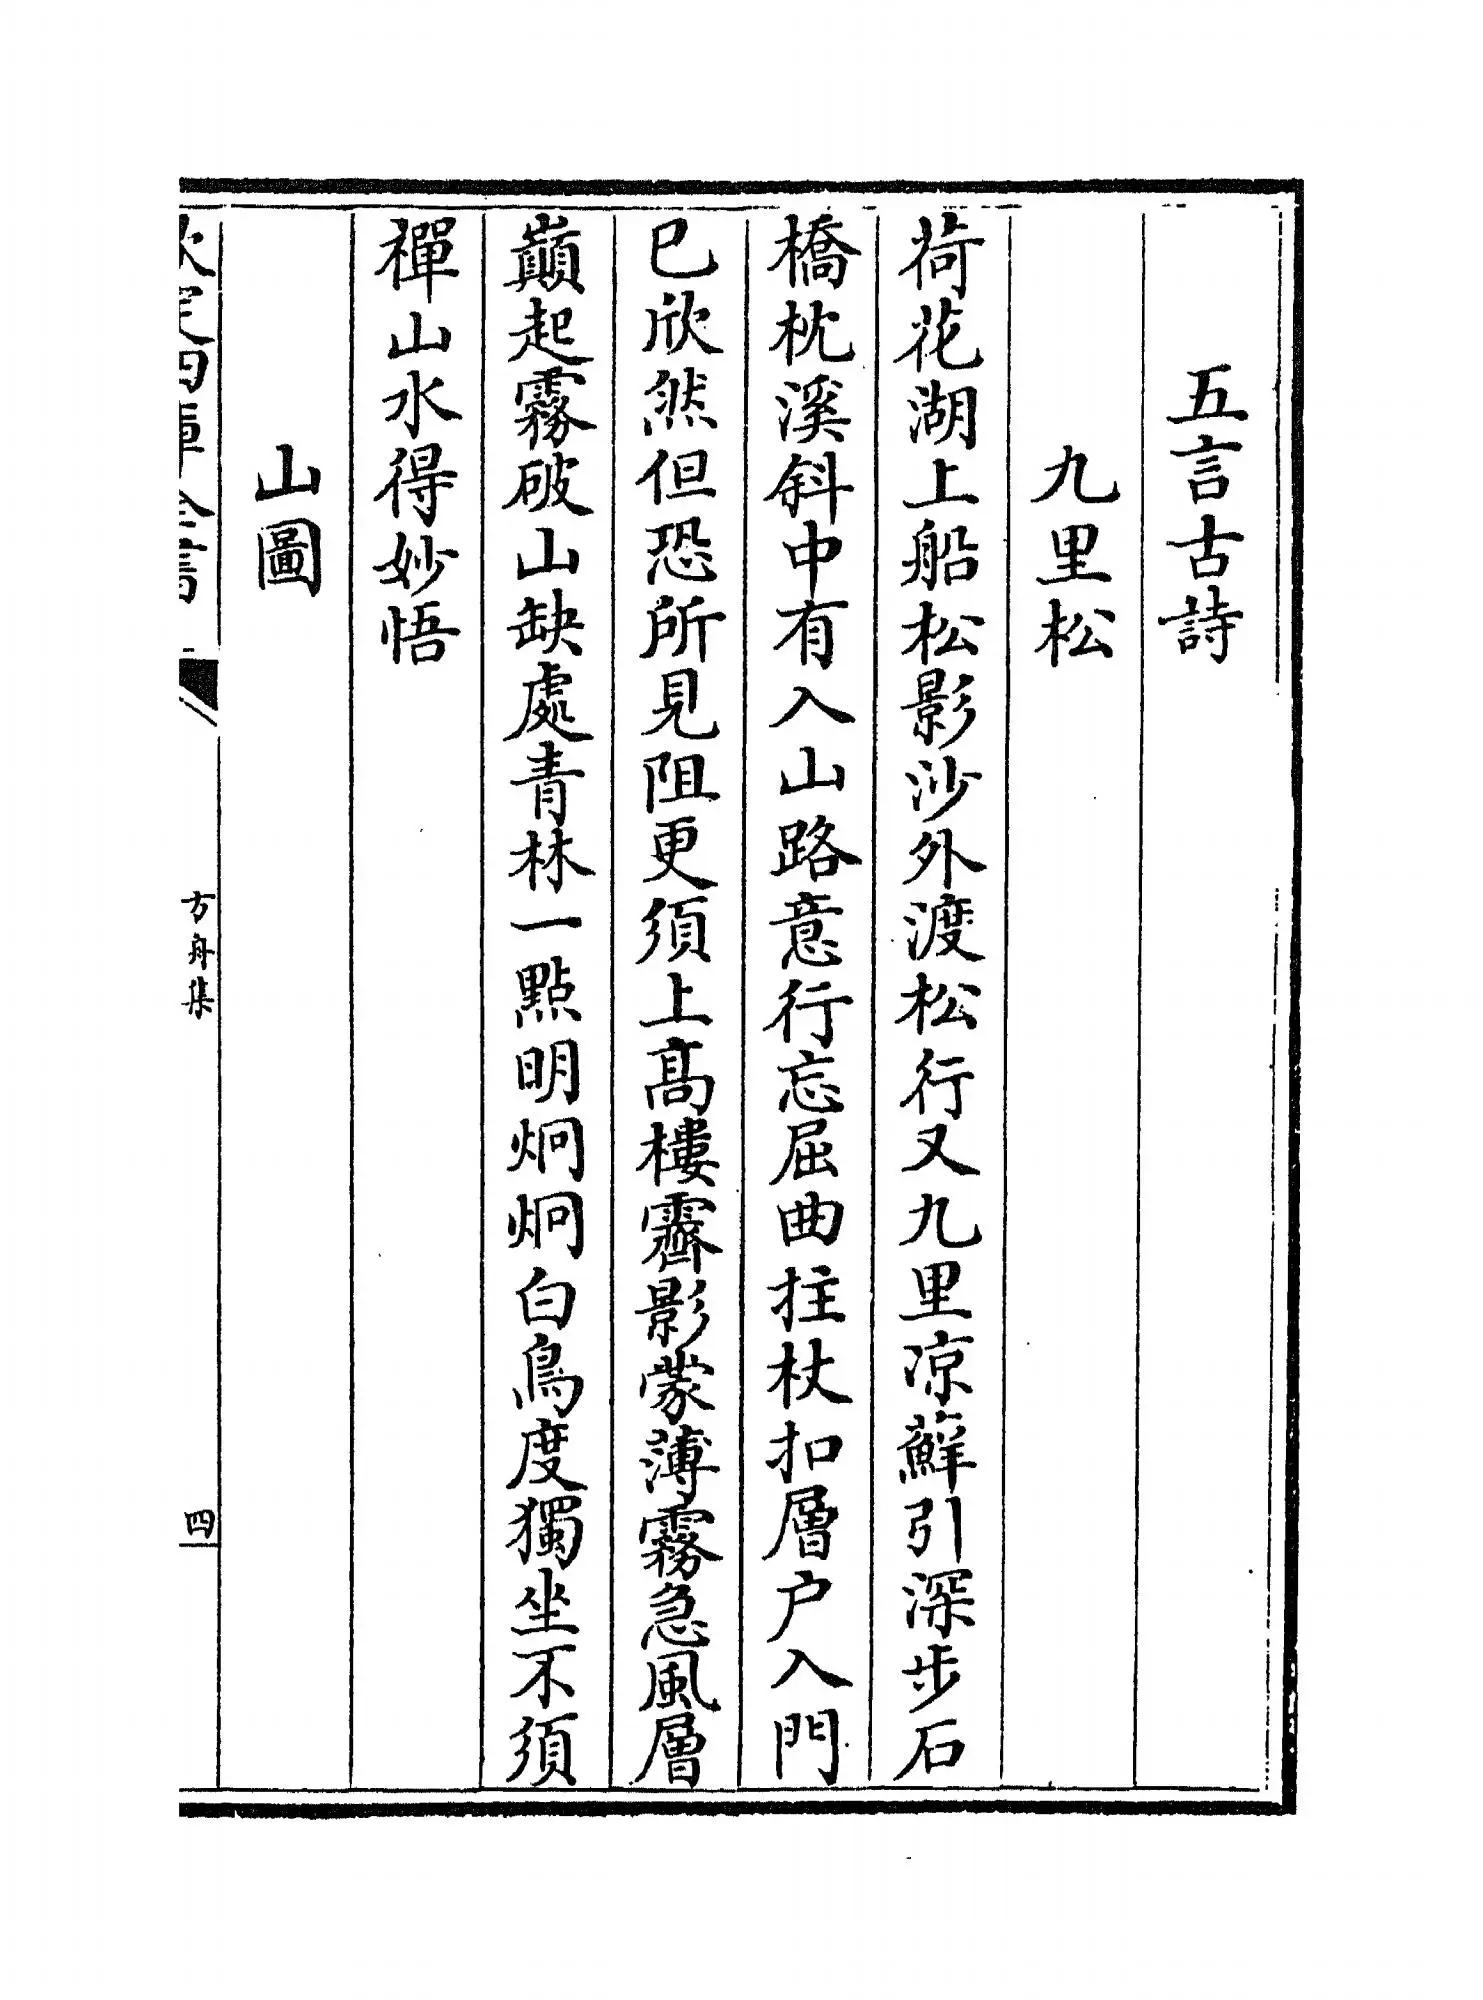 五言古詩
九里松
荷花湖上船松影沙外渡松行又九里凉蘚引深步石
橋枕溪斜中有入山路意行忘屈曲拄杖扣層户入門
已欣然但恐所見阻更須上髙樓霽影蒙薄霧急風層
巔起霧破山缺處青林一點明炯炯白鳥度獨坐不須
禪山水得妙悟
山圖
欽定四庫全書
方舟集
四